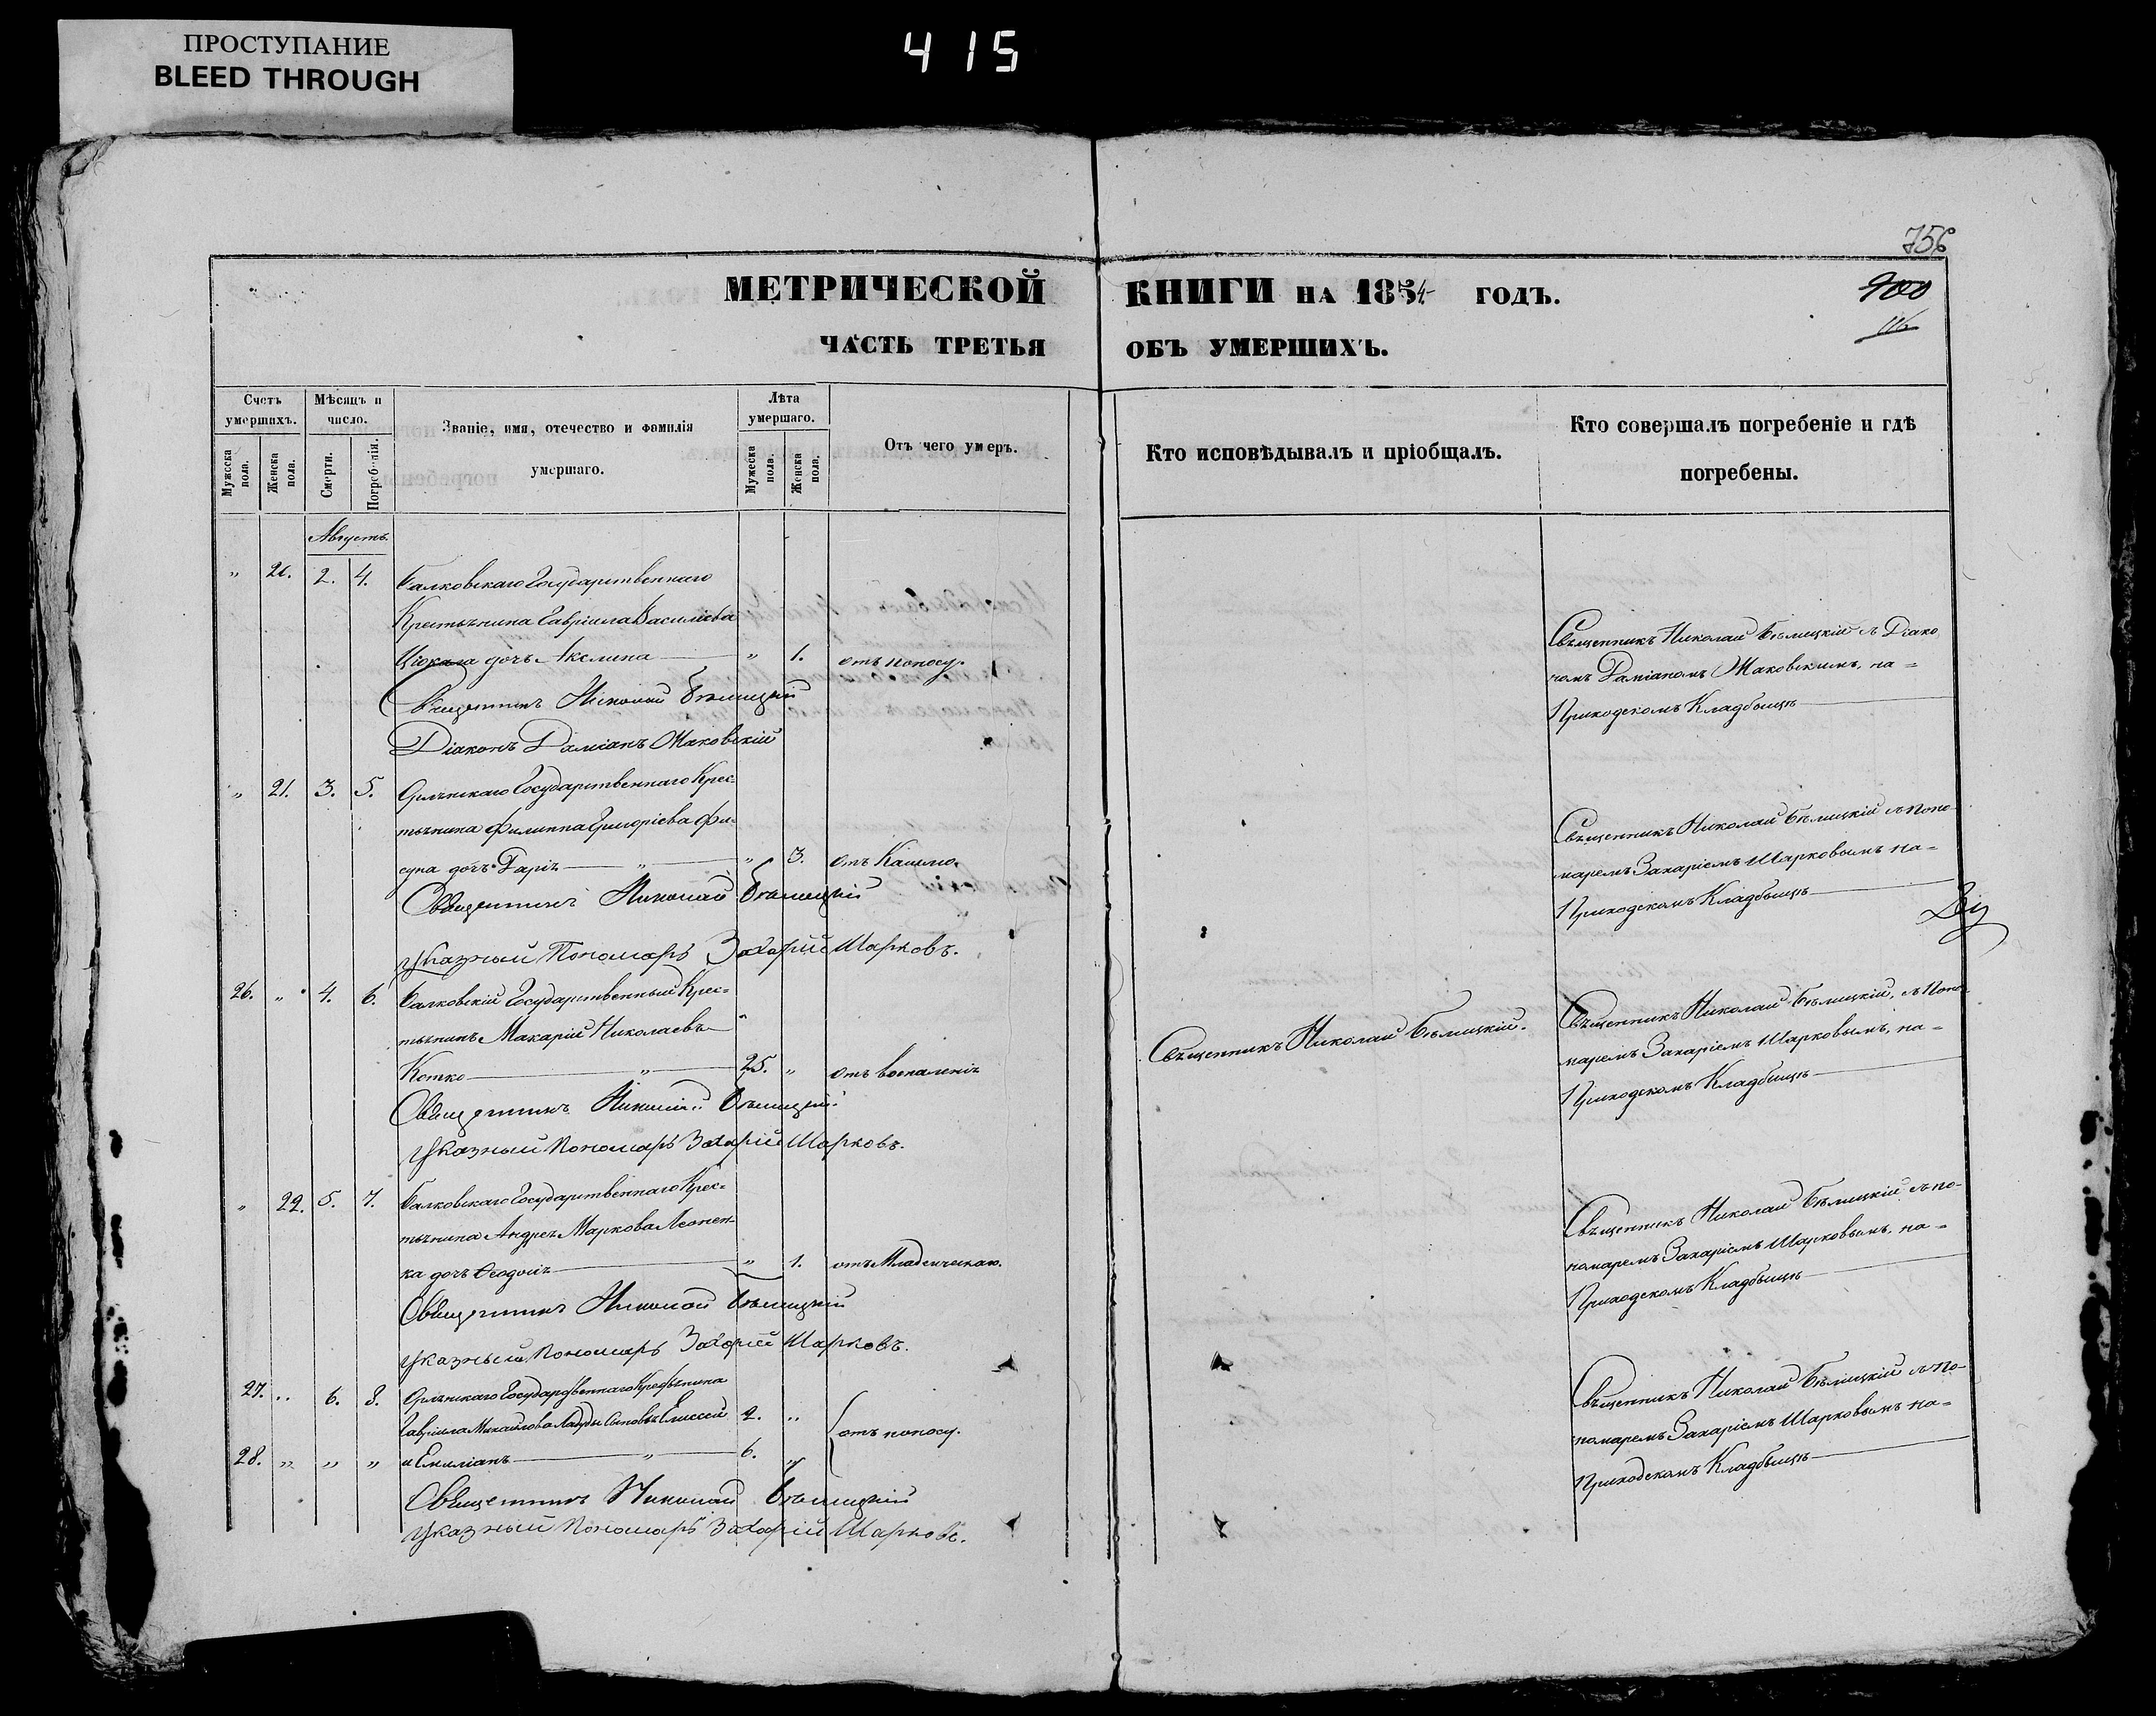 ПРОСТУПАНИЕ
BLEED THROUGH
415
756
МЕТРИЧЕСКОЙ КНИГИ НА 1854 ГОДЪ.
900
116
ЧАСТЬ ТРЕТЬЯ ОБЪ УМЕРШИХЪ.
Счетъ умершихъ.
Мужеска пола.
Женска пола.
Мѣсяцъ и число.
Смерти.
Погребенія.
Званіе, имя, отечество и фамилія
умершаго.
Лѣта умершаго.
Мужеска пола.
Женска пола.
Отъ чего умеръ.
Кто исповѣдывалъ и пріобщалъ.
Кто совершалъ погребеніе и гдѣ
погребены.
Августъ.
„ 20. 2. 4. Балковскаго Государственнаго
Крестьянина Гавріила Василіева
дочь Акелина „ 1. отъ поносу.
Священникъ Николай Бѣлицкій
Діаконъ Даміанъ Маковскій
Священникъ Николай Бѣлицкій съ Діако
номъ Даміаномъ Маковскимъ, на=
Приходскомъ Кладбищѣ
„ 21. 3. 5. Государственнаго Крес=
тьянина Филиппа Григоріева Фи=
суна дочь Дарія „ „ 3. отъ Кашлю.
Священникъ Николай Бѣлицкій
указный Пономарь Захарій Шарковъ.
Священникъ Николай Бѣлицкій съ Поно
маремъ Захаріемъ Шарковымъ на=
Приходскомъ Кладбищѣ
26. „ 4. 6. Балковскій Государственный Крес=
тьянинъ Макарій Николаевъ
Котко „ 25. „ отъ воспаленія
Священникъ Николай Бѣлицкій
Указный Пономарь Захарій Шарковъ.
Священникъ Николай Бѣлицкій.
Священникъ Николай Бѣлицкій, съ Поно
маремъ Захаріемъ Шарковымъ, на=
Приходскомъ Кладбищѣ
„ 22. 5. 7. Балковскаго Государственнаго Крес=
тьянина Андрея Маркова Леонен
ка дочь Феодосія „ 1. отъ Младенческаго.
Священникъ Николай Бѣлицкій
Указный Пономарь Захарій Шарковъ.
Священникъ Николай Бѣлицкій съ по=
номаремъ Захаріемъ Шарковымъ, на=
Приходскомъ Кладбищѣ
27. „ 6. 8. Государственнаго Крестьянина
Гавріила Михайлова Сыновья Елисей 2. „
отъ поносу.
28. „ „ „ и Емиліанъ „ 6. „
Священникъ Николай Бѣлицкій
Указный Пономарь Захарій Шарковъ.
Священникъ Николай Бѣлицкій съ По=
номаремъ Захаріемъ Шарковымъ на=
Приходскомъ Кладбищѣ